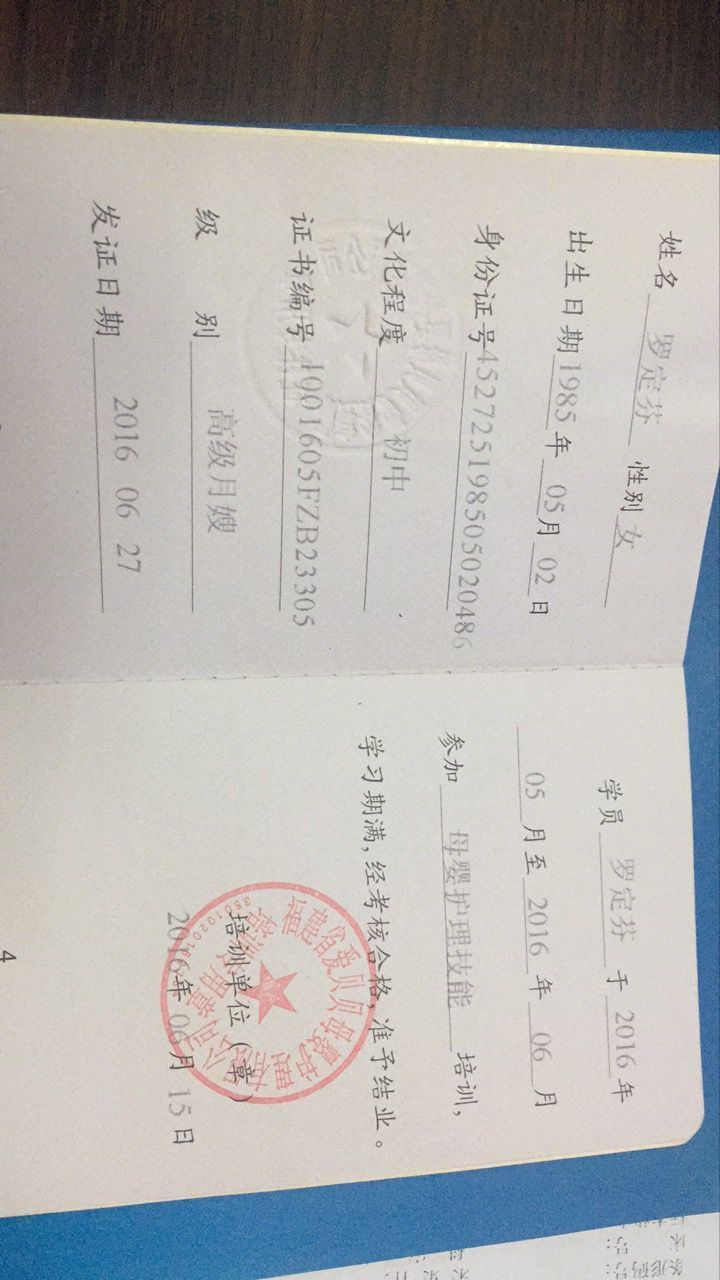 姓名 罗定芬 性别 女
出生日期 1985 年 05 月 02 日
身份证号 452725198505020486
文化程度 初中
证书编号 1901605FZB23305
级 别 高级月嫂
发证日期 2016 06 27
学员 罗定芬 于 2016 年
05 月至 2016 年 06 月
参加 母婴护理技能 培训,
学习期满,经考核合格,准予结业。
培训单位(章)
2016年 06月 15日
4